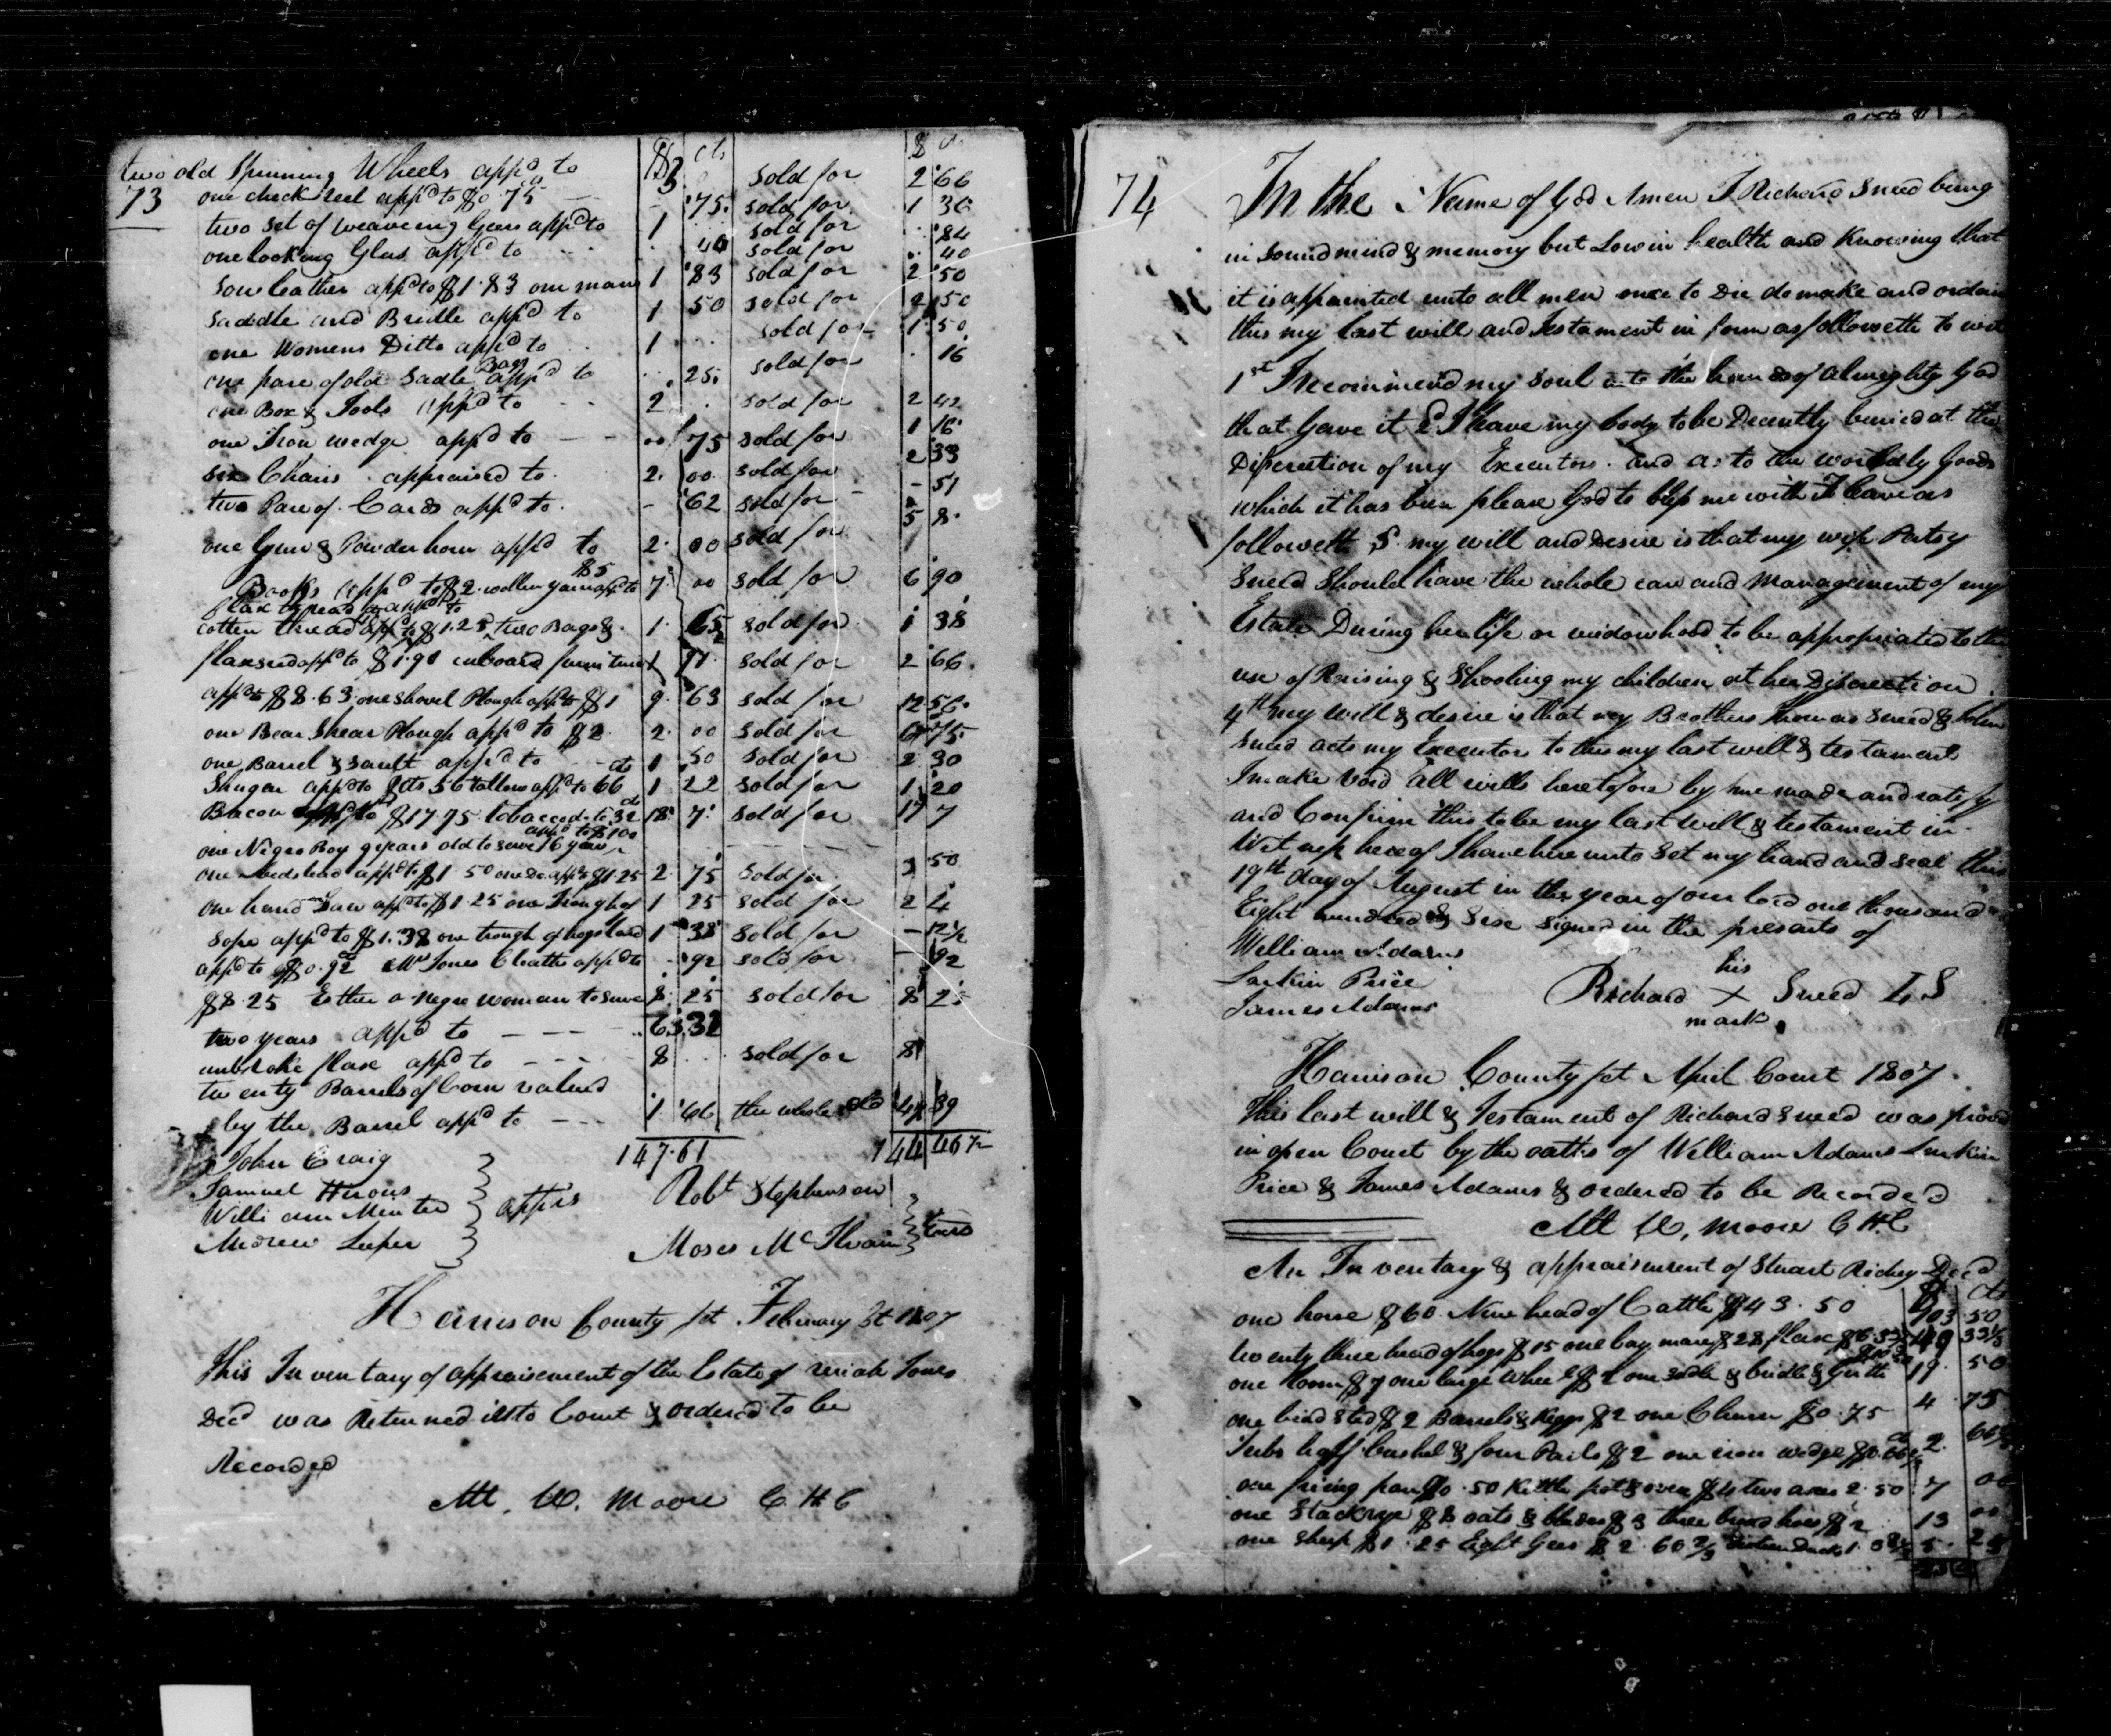 two old Spinning Wheels appd to 3 sold for 2 66
73 one check reel appd to $0.75 75 sold for 1 36
two set of weaveing Gears appd to 1 sold for 84
one looking Glass appd to 40 sold for 40
Sole leather appd to $1.83 one mans 1 83 sold for 2 50
Saddle and Bridle appd to 1 50 sold for 2 50
one Womens Ditto appd to 1 sold for 1 50
one pare of old Sadle Bags appd to 25 sold for 16
one Box & Tools appd to 2 sold for 2 42
one Iron wedge appd to 75 sold for 1 16
six Chairs appraised to 2. 00 sold for 2 33
two Pare of Cards appd to 62 sold for - 51
one Gun & Powder horn appd to 2. 00 sold for 5 8
Books appd to $2. wollen yarn appd to $5 7 00 sold for 6 90
flax thread appd to
cotten thread appd to $1.25 two Bags & 1. 65 sold for 1 38
flaxseed appd to $1.91 cuboard furniture 1 91 sold for 2 66.
appd to $8.63 one shovel Plough appd to $1 9. 63 sold for 12 56
one Bear Shear Plough appd to $2. 2. 00 sold for 6 75
one Barrel & sault appd to 1 50 sold for 2 30
Shugar appd to $ cts 56 tallow appd to 66 cts 1 22 sold for 1 20
Bacon appd to $17.75 tobacco do to 32 cts 18 7 sold for 17 7
one Negro Boy 9 years old to serve 16 years appd to $100
one bedstead appd to $1.50 one Do appd $1.25 2. 75 sold for 3 50
one hand Saw appd to $1.25 one Trough of 1 25 sold for 2 4
Sope appd to $1.38 one trough of hogs lard 1 38 sold for - 12½
appd to $0.92 cts Mrs Jones Cloaths appd to - 92 sold for - 92
$8.25 Esther a negro woman to serve 8. 25 sold for 8 25
two years appd to - - - 63 32
unbroke flax appd to - - - 8 sold for 8
twenty Barrels of Corn valued
by the Barrel appd to - - - 1 66 the whole sold 44 39
147.61 144 46½
John Craig
Samuel Herons
William Minter
Andrew Leeper
apprs
Robt Stephenson
Moses McIlvain
Harrison County sct February Ct 1807
This Inventary of appraisement of the Estate of Uriah Jones
Decd was Returned into Court & ordered to be
Recorded
Att. W. Moore C H C
74 In the Name of God Amen I Richard Sneed being
in sound mind & memory but Low in health and Knowing that
it is appointed unto all men once to Die do make and ordain
this my last will and Testament in form as followeth to wit
1st I recommend my Soul into the hands of almighty God
that gave it 2 I leave my body to be Decently buried at the
Discreetion of my Executors. and as to the worldly Goods
which it has been please God to bless me with I leave as
followeth 3. my will and Desire is that my wife Patsy
Sneed Should have the whole care and management of my
Estate During her life or widowhood to be appropriated to the
use of Raising & Schooling my children at her Discreetion
4th my will & desire is that my Brothers Thomas Sneed & John
Sneed acts my Executors to this my last will & testament
I make Void all wills heretofore by me made and ratefy
and Confirm this to be my last will & testament in
Witness hereof I have hire unto Set my hand and seal this
19th day of August in the year of our lord one thousand
Eight hundred & Six Signed in the presents of
William Adams
Larkin Price
James Adams
his
Richard X Sneed L S
mark
Harrison County sct April Court 1807.
This last will & Testament of Richard Sneed was proved
in open Court by the oaths of William Adams Larkin
Price & James Adams & ordered to be Recorded
Att W. Moore C H C
An Inventary & appraisement of Stuart Richey Decd
$ cts
one horse $60 Nine head of Cattle $43.50 103 50
twenty three head of hogs $15 one bay mare $28 flax $6.33⅓ 49 33⅓
one loom $7 one large wheel $2 one sadle & bridle & Girth $10.50 19. 50
one bead sted $2 Barrels & Keggs $2 one Churn $0.75 4 75
Tubs half bushel & four Pails $2 one iron wedge $0.66⅔ 2. 66⅔
one friing pan $0.50 Kittle pot & oven $4 two axes 2.50 7 00
one Stack rye $8 oats & blades $3 three broad hoes $2 13 00
one sheep $1.25 Eight Gees $2.66⅔ 5. 25